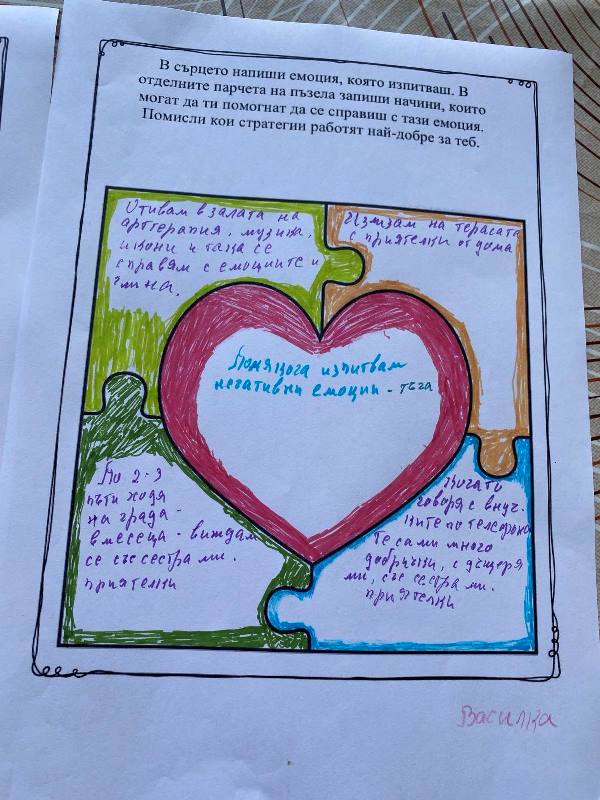 В сърцето напиши емоция, която изпитваш. В
отделните парчета на пъзела запиши начини, които
могат да ти помогнат да се справиш с тази емоция.
Помисли кои стратегии работят най-добре за теб.
Отивам в залата на
арттерапия, музика,
икони и така се
справям с емоциите и
глина.
Излизам на терасата
с приятелки от дома
Понякога изпитвам
негативни емоции - тъга
По 2-3
пъти ходя
на града -
в месеца - виждам
се със сестра ми.
приятелки
Когато
говоря с внуч-
ките по телефона
Те сами много
добрички, с дъщеря
ми, със сестра ми.
приятелки
Василка